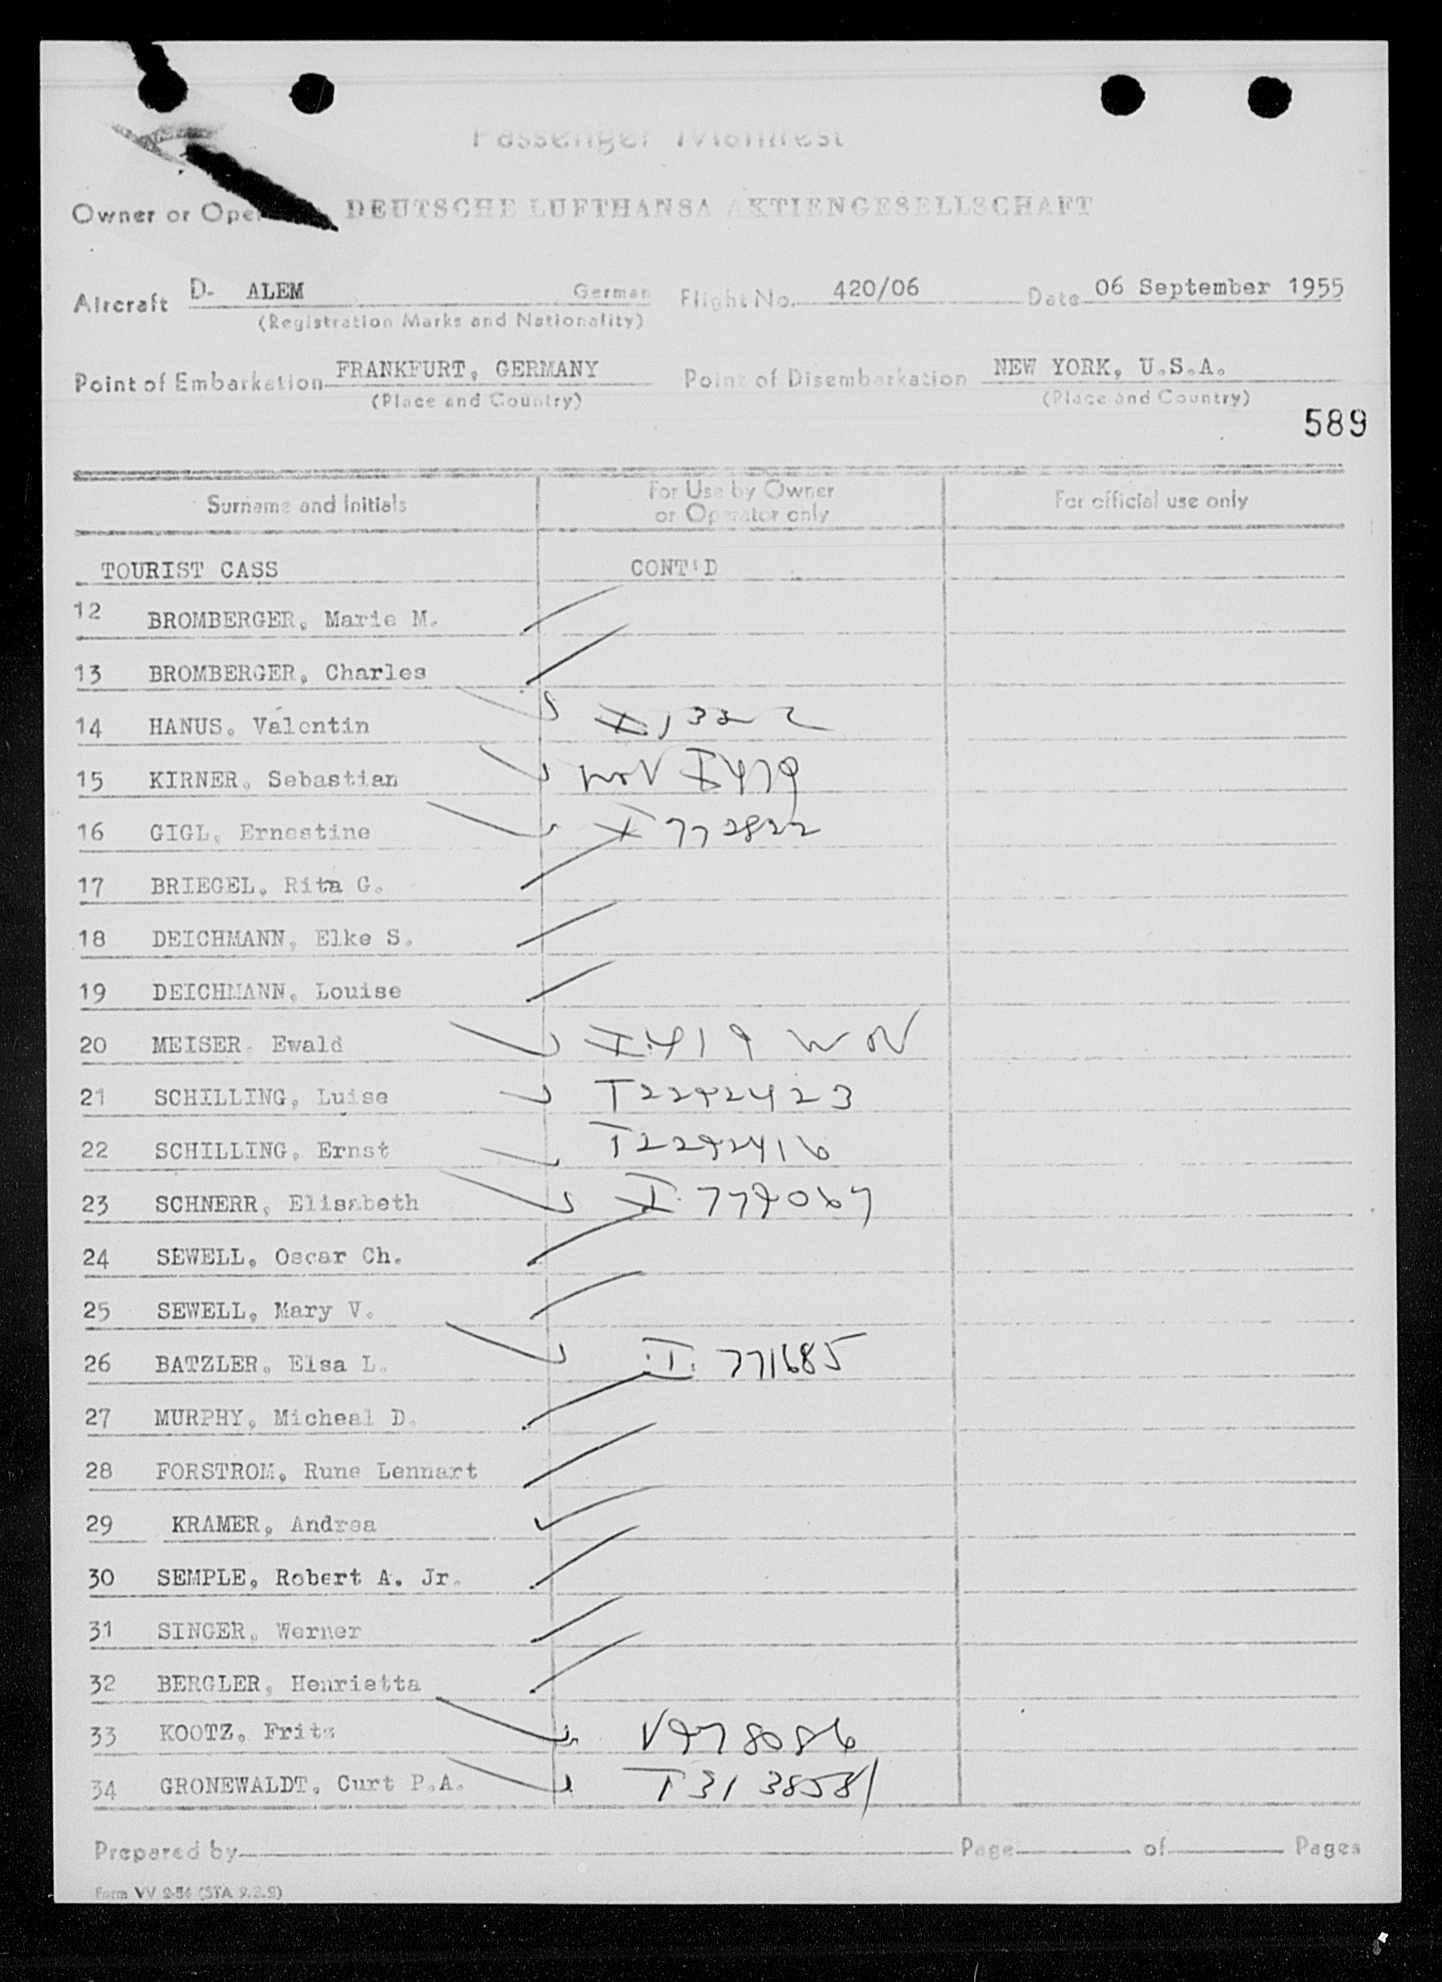 Passenger Manifest
Owner or Ope DEUTSCHE LUFTHANSA AKTIENGESELLSCHAFT
Aircraft D- ALEM German Flight No. 420/06 Date 06 September 1955
(Registration Marks and Nationality)
Point of Embarkation FRANKFURT, GERMANY Point of Disembarkation NEW YORK, U.S.A.
(Place and Country) (Place and Country)
589
Surname and Initials For Use by Owner or Operator only For official use only
TOURIST CASS CONT'D
12 BROMBERGER, Marie M.
13 BROMBERGER, Charles
14 HANUS, Valentin
15 KIRNER, Sebastian
16 GIGL, Ernestine I 772822
17 BRIEGEL, Rita G.
18 DEICHMANN, Elke S.
19 DEICHMANN, Louise
20 MEISER Ewald
21 SCHILLING, Luise T2292423
22 SCHILLING, Ernst T2292416
23 SCHNERR, Elisabeth I.
24 SEWELL, Oscar Ch.
25 SEWELL, Mary V.
26 BATZLER, Elsa L. I. 771685
27 MURPHY, Micheal D.
28 FORSTROM, Rune Lennart
29 KRAMER, Andrea
30 SEMPLE, Robert A. Jr.
31 SINGER, Werner
32 BERGLER, Henrietta
33 KOOTZ, Fritz V978086
34 GRONEWALDT, Curt P.A. T313858/
Prepared by Page of Pages
Form VV 2-54 (STA 9.2.9)